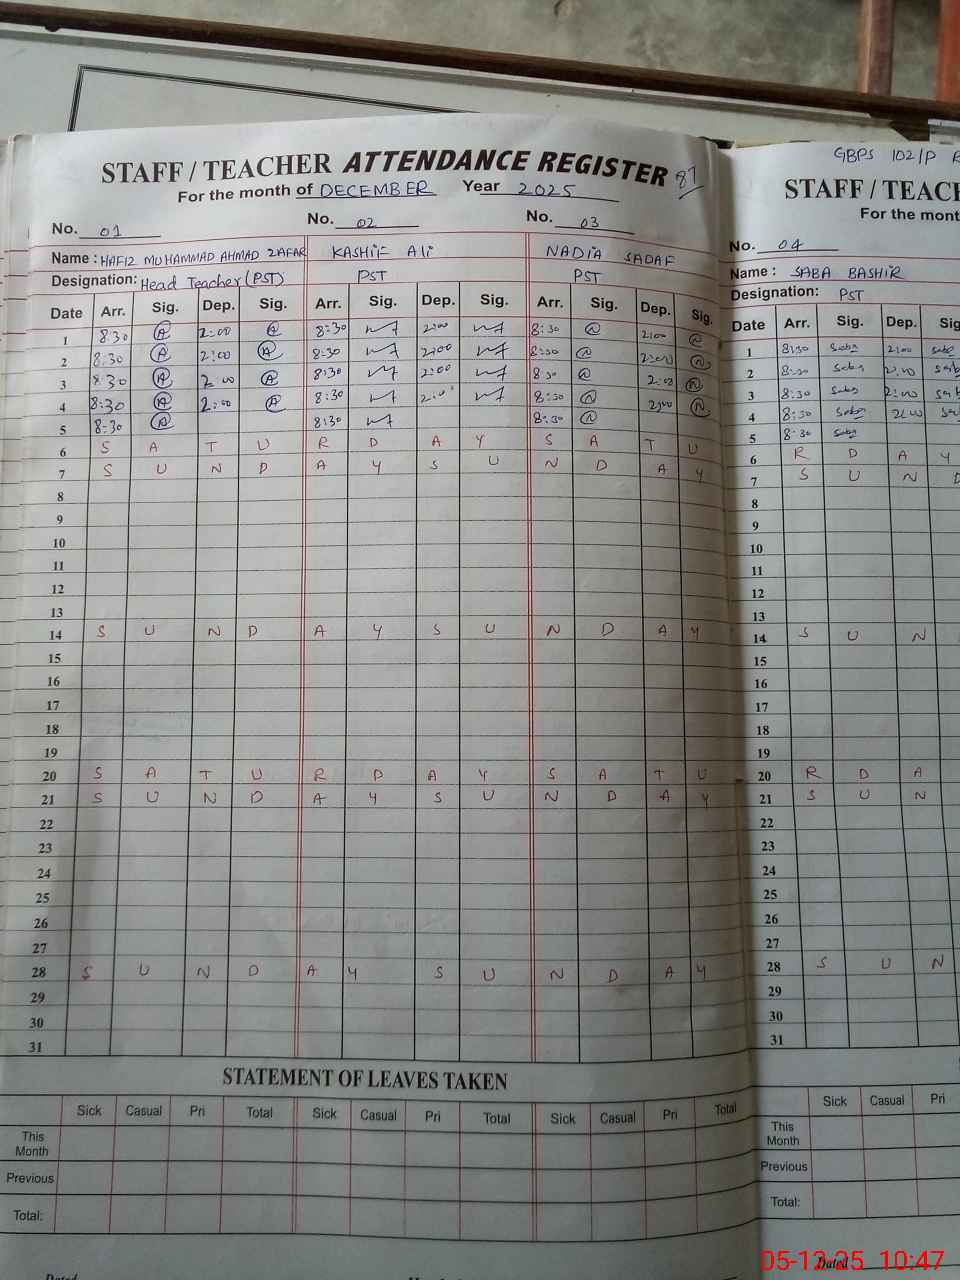 GBPS 102/P
STAFF / TEACHER ATTENDANCE REGISTER 87
For the month of DECEMBER Year 2025
No. 01 No. 02 No. 03
Name : HAFIZ MUHAMMAD AHMAD ZAFAR KASHIF Ali NADIA SADAF
Designation: Head Teacher (PST) PST PST
Date Arr. Sig. Dep. Sig. Arr. Sig. Dep. Sig. Arr. Sig. Dep. Sig.
1 8:30 A 2:00 A 8:30 2:00 8:30 2:00
2 8:30 A 2:00 A 8:30 2:00 8:30 2:00 N
3 8:30 A 2:00 A 8:30 2:00 8:30 2:00 N
4 8:30 A 2:00 A 8:30 2:00 8:30 2:00 N
5 8:30 A 8:30 8:30
6 S A T U R D A Y S A T U
7 S U N D A Y S U N D A Y
8
9
10
11
12
13
14 S U N D A Y S U N D A Y
15
16
17
18
19
20 S A T U R D A Y S A T U
21 S U N D A Y S U N D A Y
22
23
24
25
26
27
28 S U N D A Y S U N D A Y
29
30
31
STATEMENT OF LEAVES TAKEN
Sick Casual Pri Total Sick Casual Pri Total Sick Casual Pri Total
This Month
Previous
Total:
Dated
STAFF / TEACH
For the mont
No. 04
Name : SABA BASHIR
Designation: PST
Date Arr. Sig. Dep. Sig
1 8:30 Saba 2:00 Saba
2 8:30 Saba 2:00 Sab
3 8:30 Saba 2:00 Sab
4 8:30 Saba 2:00 Sa
5 8:30 Saba
6 R D A Y
7 S U N D
8
9
10
11
12
13
14 S U N
15
16
17
18
19
20 R D A
21 S U N
22
23
24
25
26
27
28 S U N
29
30
31
Sick Casual Pri
This Month
Previous
Total:
Dated
05-12-25 10:47